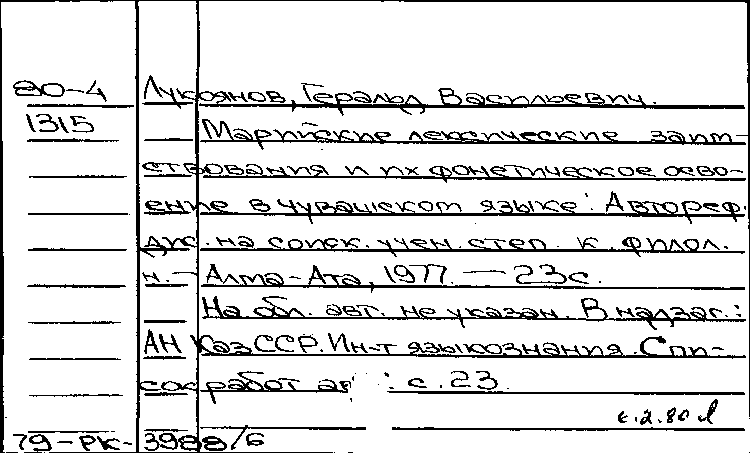 80-4 Лукоянов, Геральд Васильевич.
1315 Марийские лексические заим-
ствования и их фонетическое осво-
ение в чувашском языке: Автореф.
дис. на соиск. учен. степ. к. филол.
н. — Алма-Ата, 1977. — 23с.
На обл. авт. не указан. В надзаг.:
АН КазССР. Ин-т языкознания. Спи-
сок работ ав : с. 23.
79-РК-3988/6